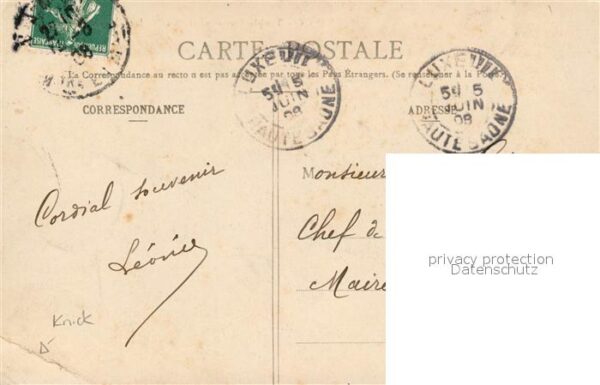 CARTE POSTALE
La Correspondance au recto n est pas acceptée par tous les Pays Étrangers. (Se renseigner à la Poste)
CORRESPONDANCE
ADRESSE
LUXEUIL
5 JUIN 08
HAUTE SAÔNE
LUXEUIL
5 JUIN 08
HAUTE SAÔNE
Cordial souvenir
Léonie
Monsieur
Chef de
Maire
privacy protection
Datenschutz
Knick